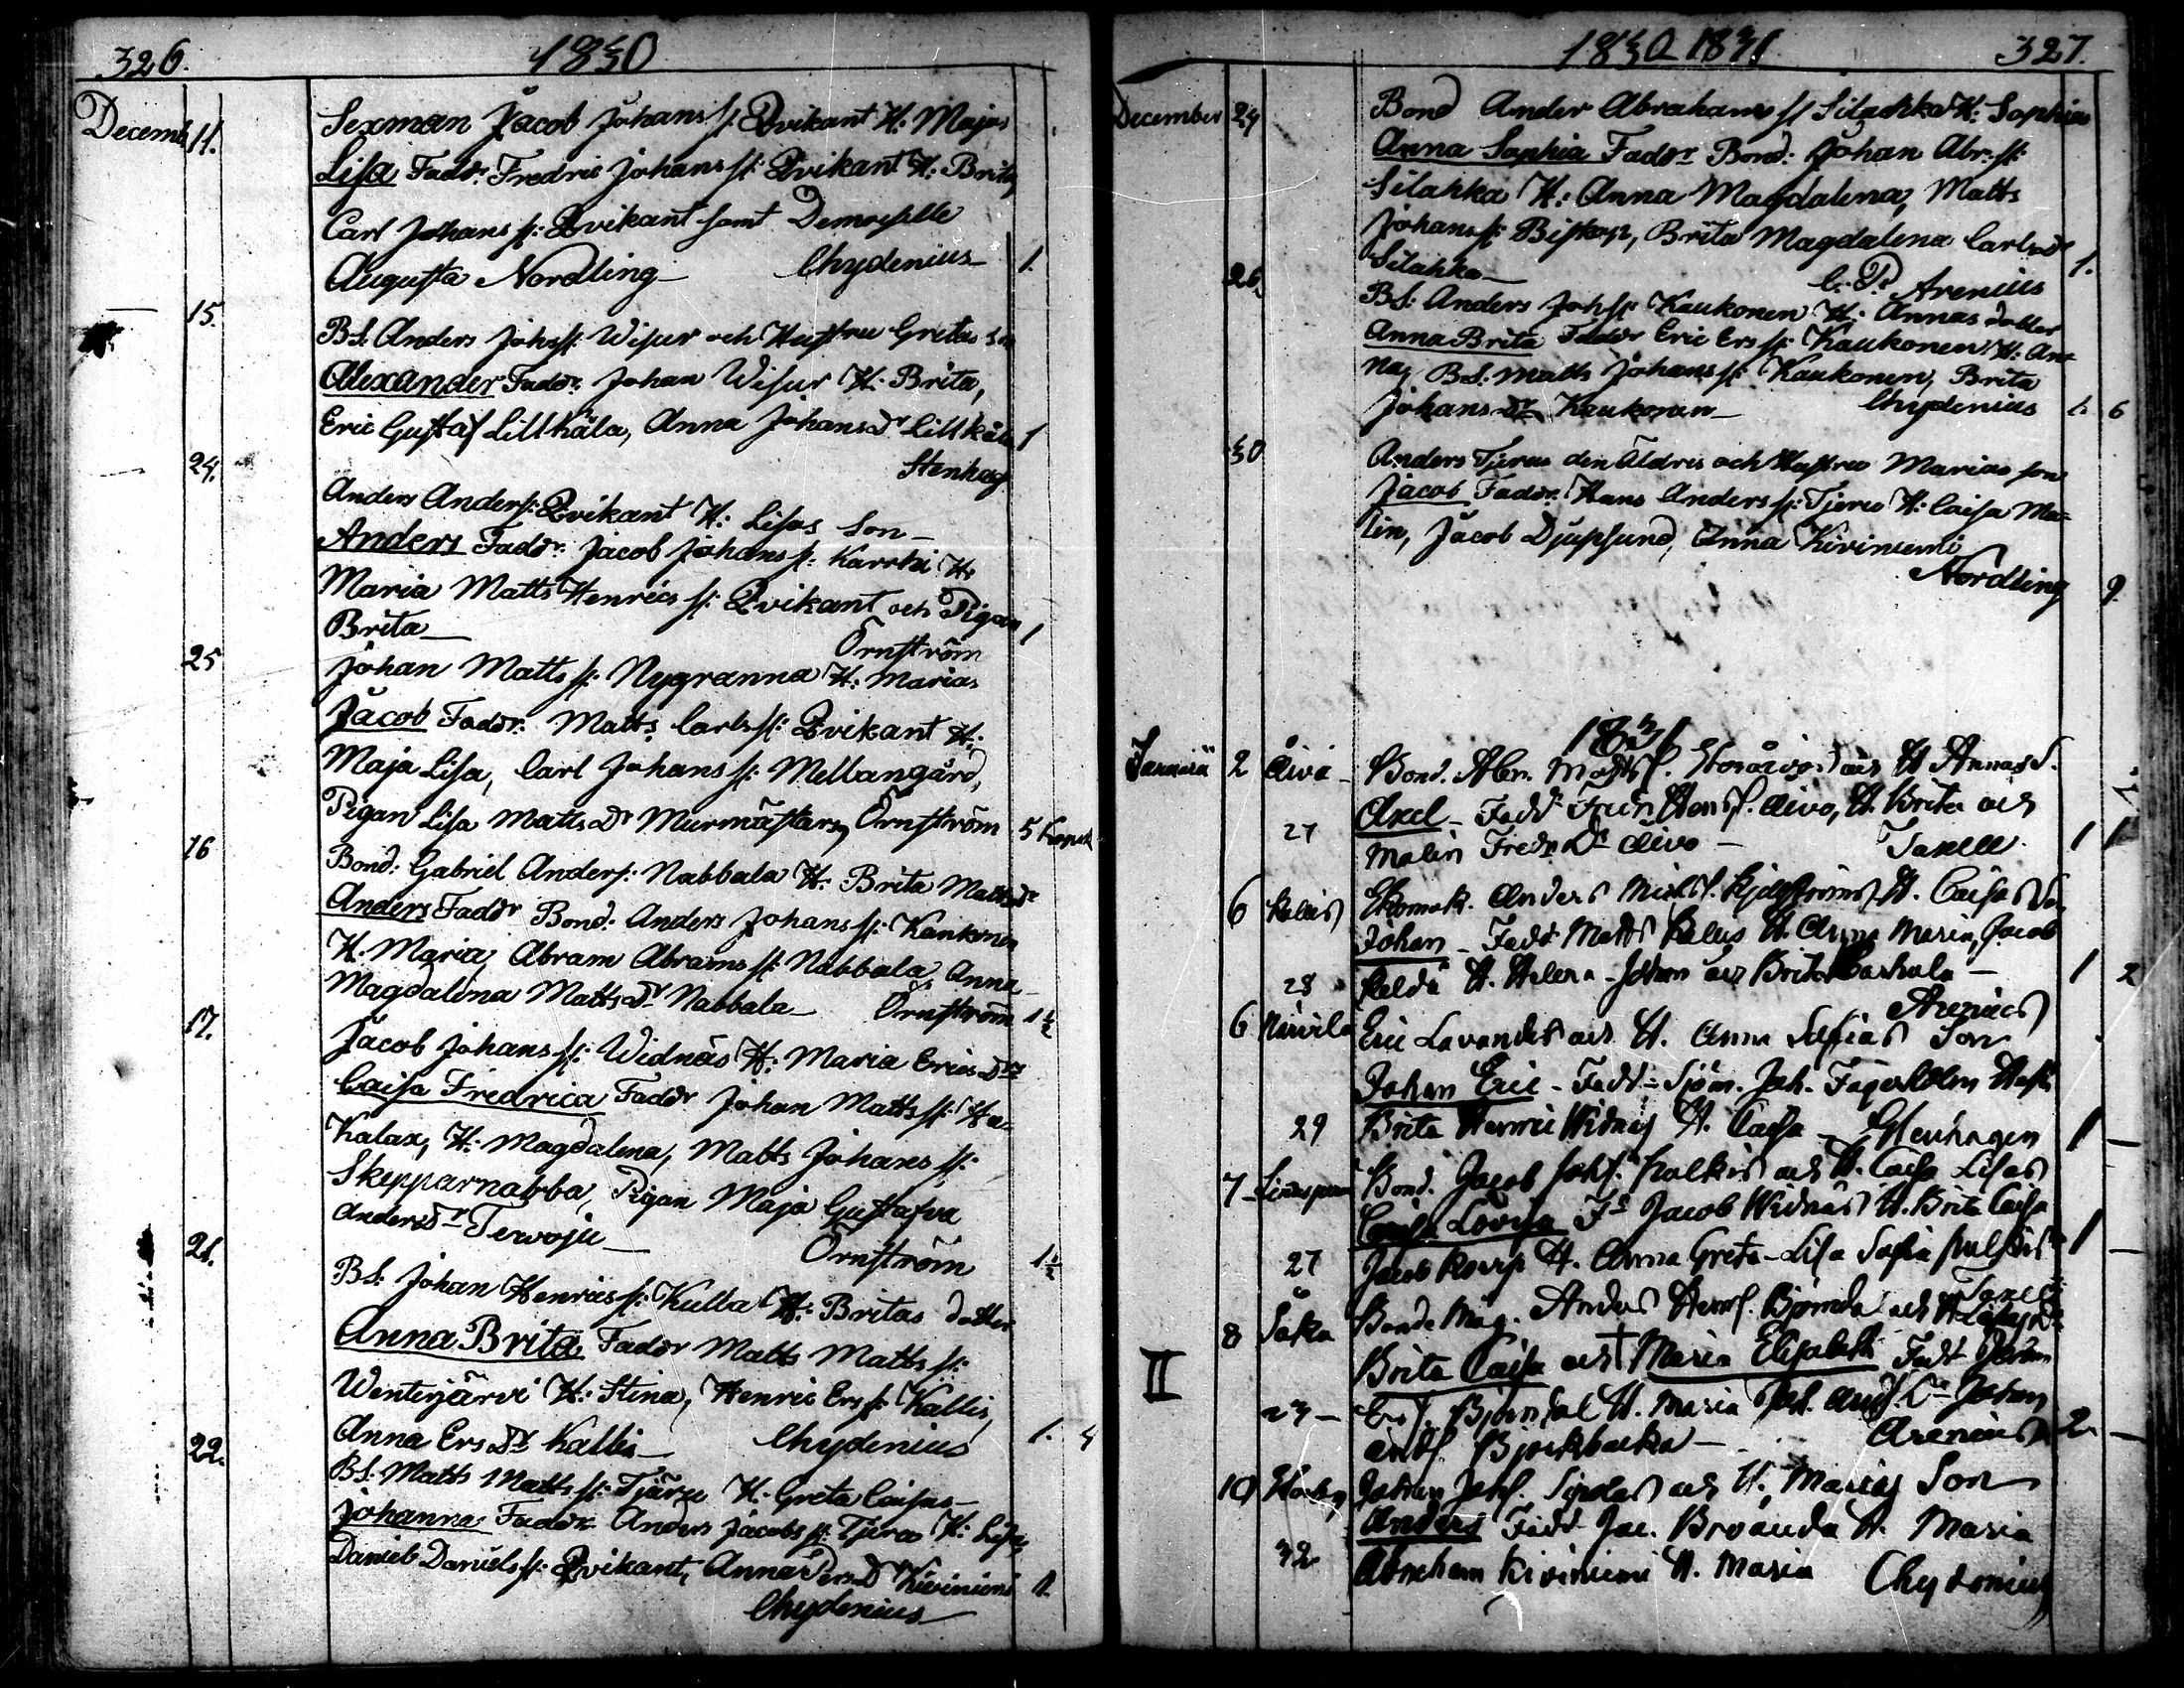 326. 1830
Decemb 11. Sexman Jacob Johans s: Qvikant H: Majas
Lisa Faddr. Fredric Johans s: Qvikant H: Brita
Carl Johans s: Qvikant samt Demoiselle
Augusta Nordling Chydenius 1.
15. BS. Anders Johs s: Wisur och Hustru Gretas son
Alexander Faddr. Johan Wisur H: Brita,
Eric Gustaf Lillkåla, Anna Johans Dr Lillkåla 1
Stenhag
24. Anders Anders s: Qvikant H: Lisas Son
Anders Faddr. Jacob Johans s: Karrki H:
Maria Matts Henrics s: Qvikant och Pigan
Brita Örnström 1
25 Johan Matts s: Nygranna H: Marias
Jacob Faddr. Matts Carls s: Qvikant H:
Maja Lisa, Carl Johans s: Mellangård,
Pigan Lisa Matts Dr Murmästars, Örnström 5
16 Bond: Gabriel Anders s: Nabbala H: Brita Matts Dr
Anders Faddr Bond: Anders Johans s: Kaukonen
H: Maria, Abram Abrams s: Nabbala, Anna
Magdalena Matts Dr Nabbala Örnström 1½
17. Jacob Johans s: Widnäs H: Maria Erics Drs
Caisa Fredrica Faddr Johan Matts s: Ha-
Kalax, H: Magdalena, Matts Johans s:
Skepparnabba, Pigan Maja Gustafva
Anders Dr Tervoju Örnström 1½
21. BS: Johan Henrics s: Kulla H: Britas dotter
Anna Brita Faddr Matts Matts s:
Wenterjärvi H: Stina, Henric Ers s: Kallis,
Anna Ers Dr Kallis Chydenius 1. 4
22. BS: Matts Matts s: Tjäru H: Greta Caisas
Johanna Faddr. Anders Jacobs s: Tjeru H: Lisa,
Daniel Daniels s: Qvikant, Anna Pers D Kiviniemi 1.
Chydenius
1830 1831 327.
December 24 Bond Ander Abrahams s: Silahka H: Sophias
Anna Sophia Faddr Bond: Johan Abr. s:
Silahka H: Anna Magdalena, Matts
Johans s: Biskop, Brita Magdalena Carls Dr
Silahka C. P. Arenius 1.
26. BS: Anders Joh s: Kaukonen H: Annas dotter
Anna Brita Faddr Eric Ers s: Kaukonen H: An-
na, BS: Matts Johans s: Kaukonen, Brita
Johans Dr Kaukonen Chydenius 1. 6
30 Anders Tjeru den Äldres och Hustru Marias son
Jacob Faddr. Hans Anders s: Tjeru H: Caisa Ma-
lin, Jacob Djupsund, Anna Kiviniemi
Nordling 9.
1831
Januarii 2 Åivo Bond. Abr. Matts s. Storåivo och H Annas S.
Axel Fadd Fredr. Hens s. Åivo, H. Brita och
27 Malin Fredr. Dr Åivo Taxell. 1 1
6 Kallis Anders Mich s. Kjellströms H. Caisas
Johan Fadd Matts Kallis H. Anna Maria, Jacob
28 H. Helena Johan och Brita 1 2
Arenius
6 Eric Lavanders och H. Anna Sofias Son
Johan Eric Fadd Sjöm. Joh. Fagerholm Hust
29 Brita Henric Widnäs H. Caisa Stenhagen 1
7 Bond. Jacob Johs s. Palkis och H. Caisa Lisas
Caisa Lovisa Fr Jacob Widnäs H. Brita Caisa
27 Jacob H. Anna Greta Lisa Sofia 1
Taxell
8 Såka Bonde Måg. Anders Henr s. Björndal och H
Brita Caisa och † Maria Elisabeth Fadd
II
Björndal H. Maria Johan
Björkbacka Arenius 2
10 Johan Johs s. och H. Marias Son
Anders Fadd Jac. H. Maria
32 Abraham Kiviniemi H. Maria Chydenius